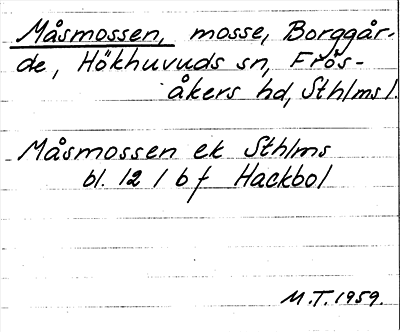 Måsmossen, mosse, Borggår-
de, Hökhuvuds sn, Frös-
åkers hd, Sthlms l.
Måsmossen ek Sthlms
bl. 12 1 b f Hackbol
M.T. 1959.